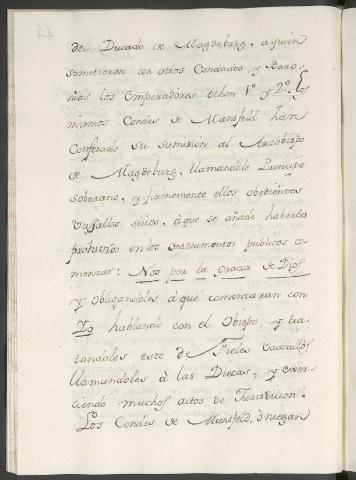 del Ducado de Magdeburg, a quien
sometieron con otros Condados, y Baro-
nias los Emperadores Othon 1º y 2º. Los
mismos Condes de Mansfeld han
Confesado su sumision al Arzobispo
de Magdeburg, llamandole Principe
soberano, y firmemente ellos obedientes
Vasallos suios, à que se añade haberles
prohivido en los instrumentos publicos co-
menzar: Nos por la gracia de Dios
y obligandoles à que comenzaran con
Yo hablando con el Obispo, y tra-
tandoles este de Fieles Vassallos
llamandoles à las Dietas, y exer-
ciendo muchos actos de Jurisdicion.
Los Condes de Mansfeld, ò niegan